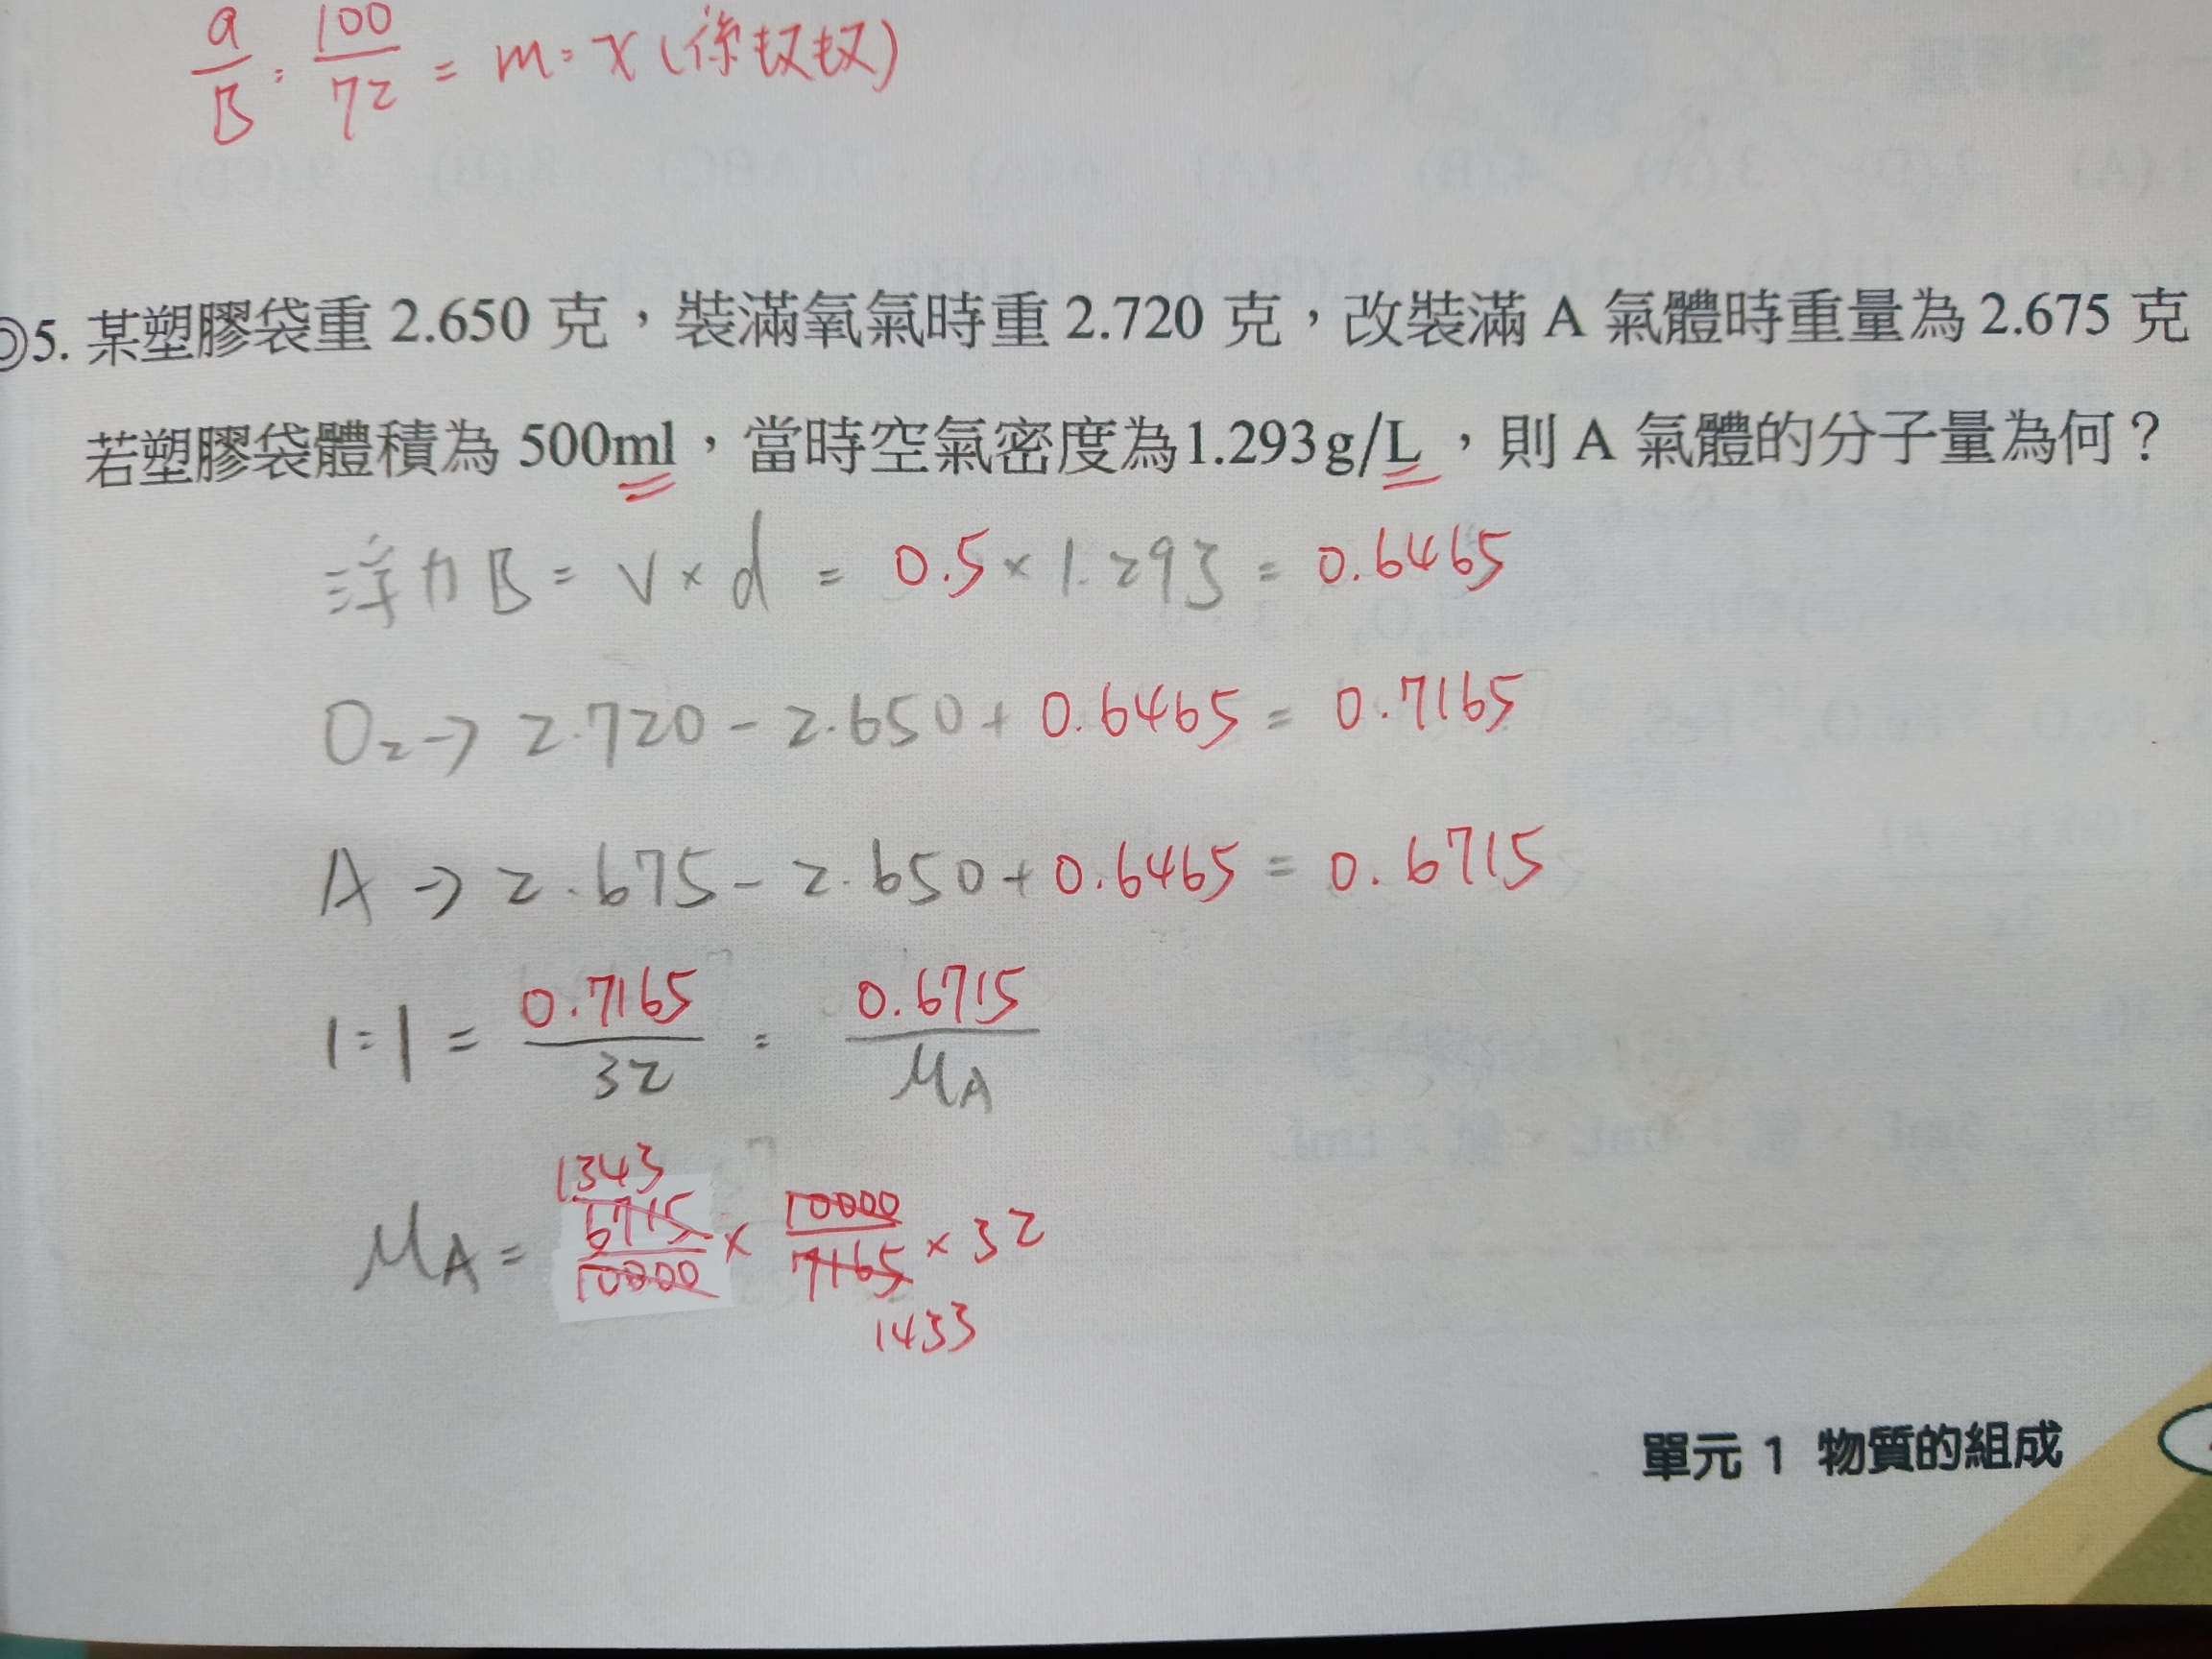 a/B : 100/72 = m : x (係數數)
◎5. 某塑膠袋重 2.650 克,裝滿氧氣時重 2.720 克,改裝滿 A 氣體時重量為 2.675 克
若塑膠袋體積為 500ml,當時空氣密度為1.293g/L,則 A 氣體的分子量為何?
浮力 B = V × d = 0.5 × 1.293 = 0.6465
O₂ → 2.720 - 2.650 + 0.6465 = 0.7165
A → 2.675 - 2.650 + 0.6465 = 0.6715
1 : 1 = 0.7165/32 : 0.6715/MA
1343
MA = 6715/10000 × 10000/7165 × 32
1433
單元 1 物質的組成